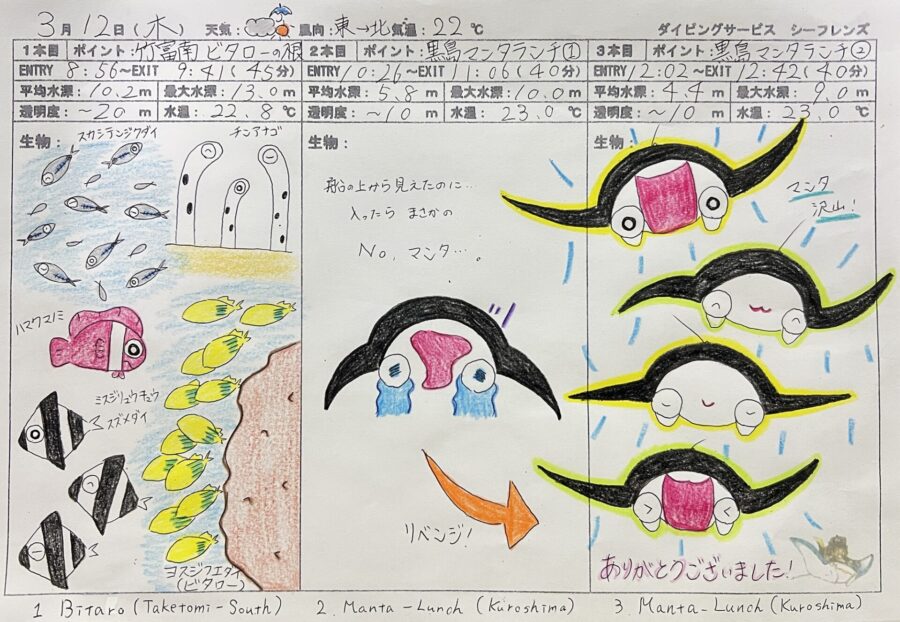 3月12日(木) 天気: 風向:東→北 気温:22℃ ダイビングサービス シーフレンズ
1本目 ポイント:竹富南 ビタローの根
ENTRY 8:56~EXIT 9:41(45分)
平均水深:10.2m 最大水深:13.0m
透明度:~20m 水温:22.8℃
生物:
スカシテンジクダイ
チンアナゴ
ハマクマノミ
ミスジリュウキュウ
スズメダイ
ヨスジフエダイ
(ビタロー)
2本目 ポイント:黒島マンタランチ①
ENTRY 10:26~EXIT 11:06(40分)
平均水深:5.8m 最大水深:10.0m
透明度:~10m 水温:23.0℃
生物:
船の上から見えたのに…
入ったら まさかの
No, マンタ…。
リベンジ!
3本目 ポイント:黒島マンタランチ②
ENTRY 12:02~EXIT 12:42(40分)
平均水深:4.4m 最大水深:9.0m
透明度:~10m 水温:23.0℃
生物:
マンタ
沢山!
ありがとうございました!
1 Bitaro (Taketomi-South) 2. Manta-Lunch (Kuroshima) 3. Manta-Lunch (Kuroshima)